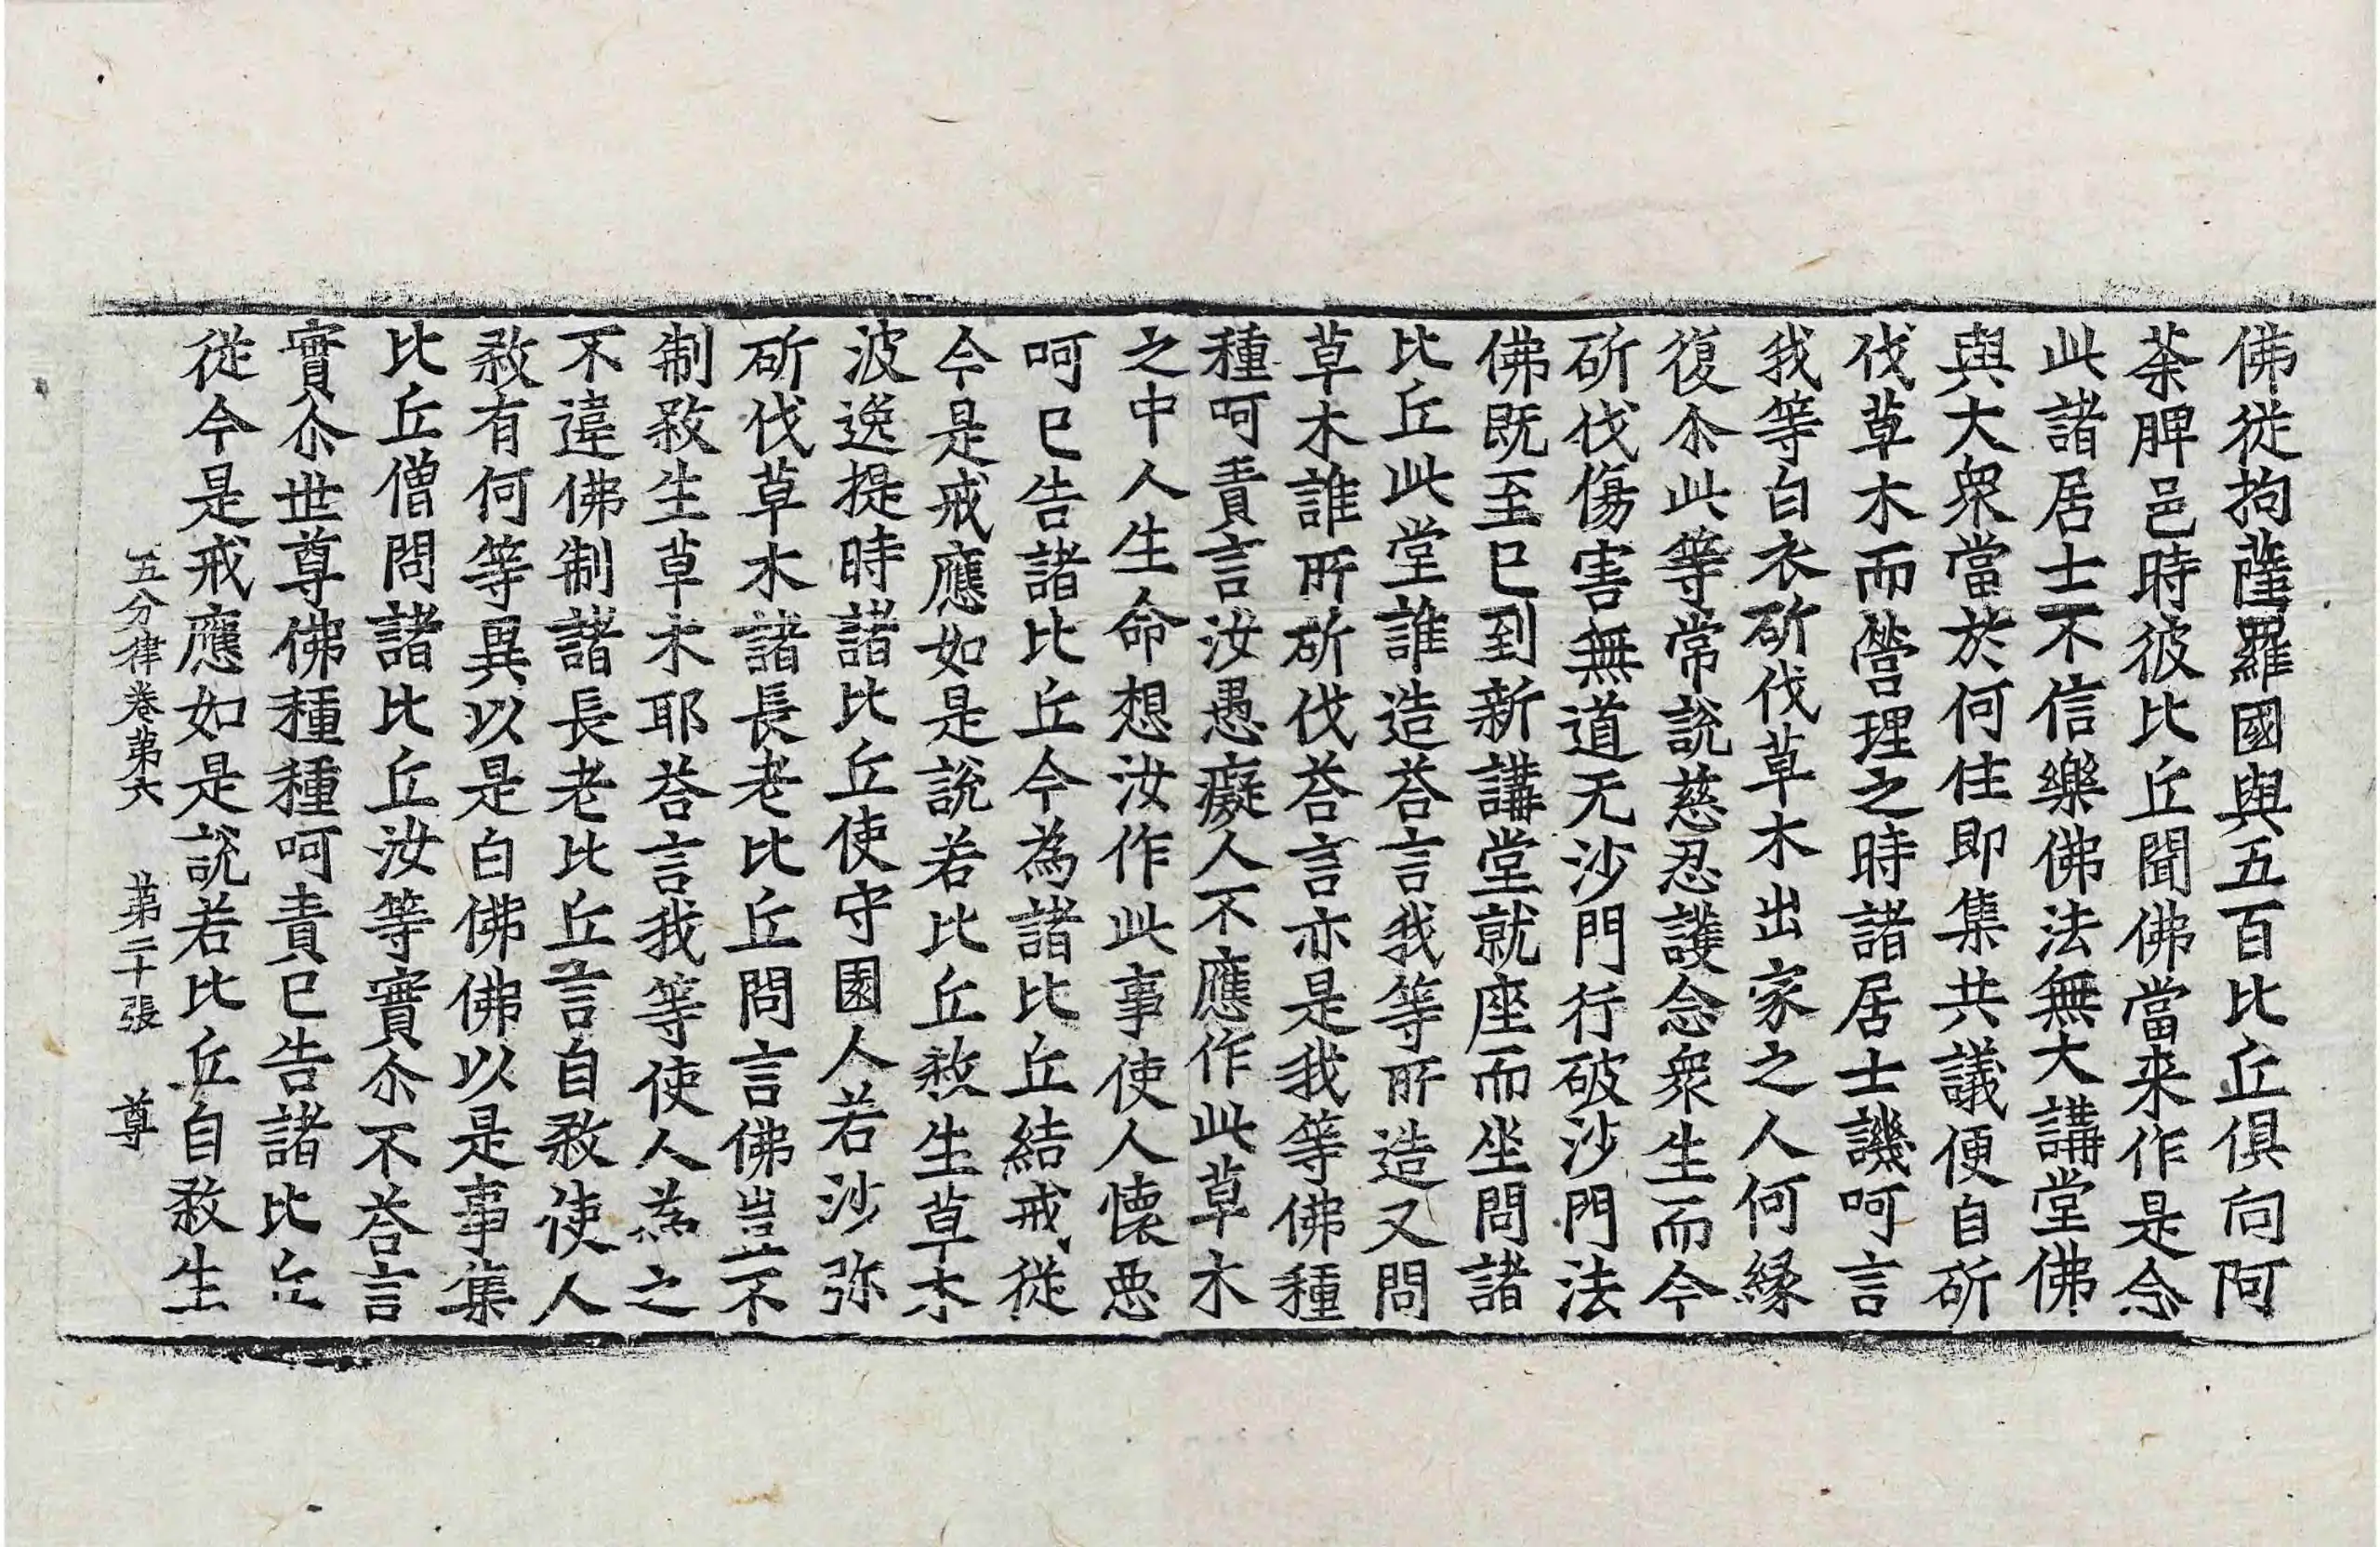 佛從拘薩羅國與五百比丘俱向阿
荼脾邑時彼比丘聞佛當来作是念
此諸居士不信樂佛法無大講堂佛
與大衆當於何住即集共議便自斫
伐草木而營理之時諸居士譏呵言
我等白衣斫伐草木出家之人何縁
復尒此等常說慈忍護念衆生而今
斫伐傷害無道无沙門行破沙門法
佛既至巳到新講堂就座而坐問諸
比丘此堂誰造荅言我等所造又問
草木誰所斫伐荅言亦是我等佛種
種呵責言汝愚癡人不應作此草木
之中人生命想汝作此事使人懷惡
呵巳告諸比丘今為諸比丘結戒從
今是戒應如是說若比丘煞生草木
波逸提時諸比丘使守園人若沙弥
斫伐草木諸長老比丘問言佛豈不
制煞生草木耶荅言我等使人為之
不違佛制諸長老比丘言自煞使人
煞有何等異以是白佛佛以是事集
比丘僧問諸比丘汝等實尒不荅言
實尒世尊佛種種呵責巳告諸比丘
從今是戒應如是說若比丘自煞生
五分律卷第六 第二十張 尊